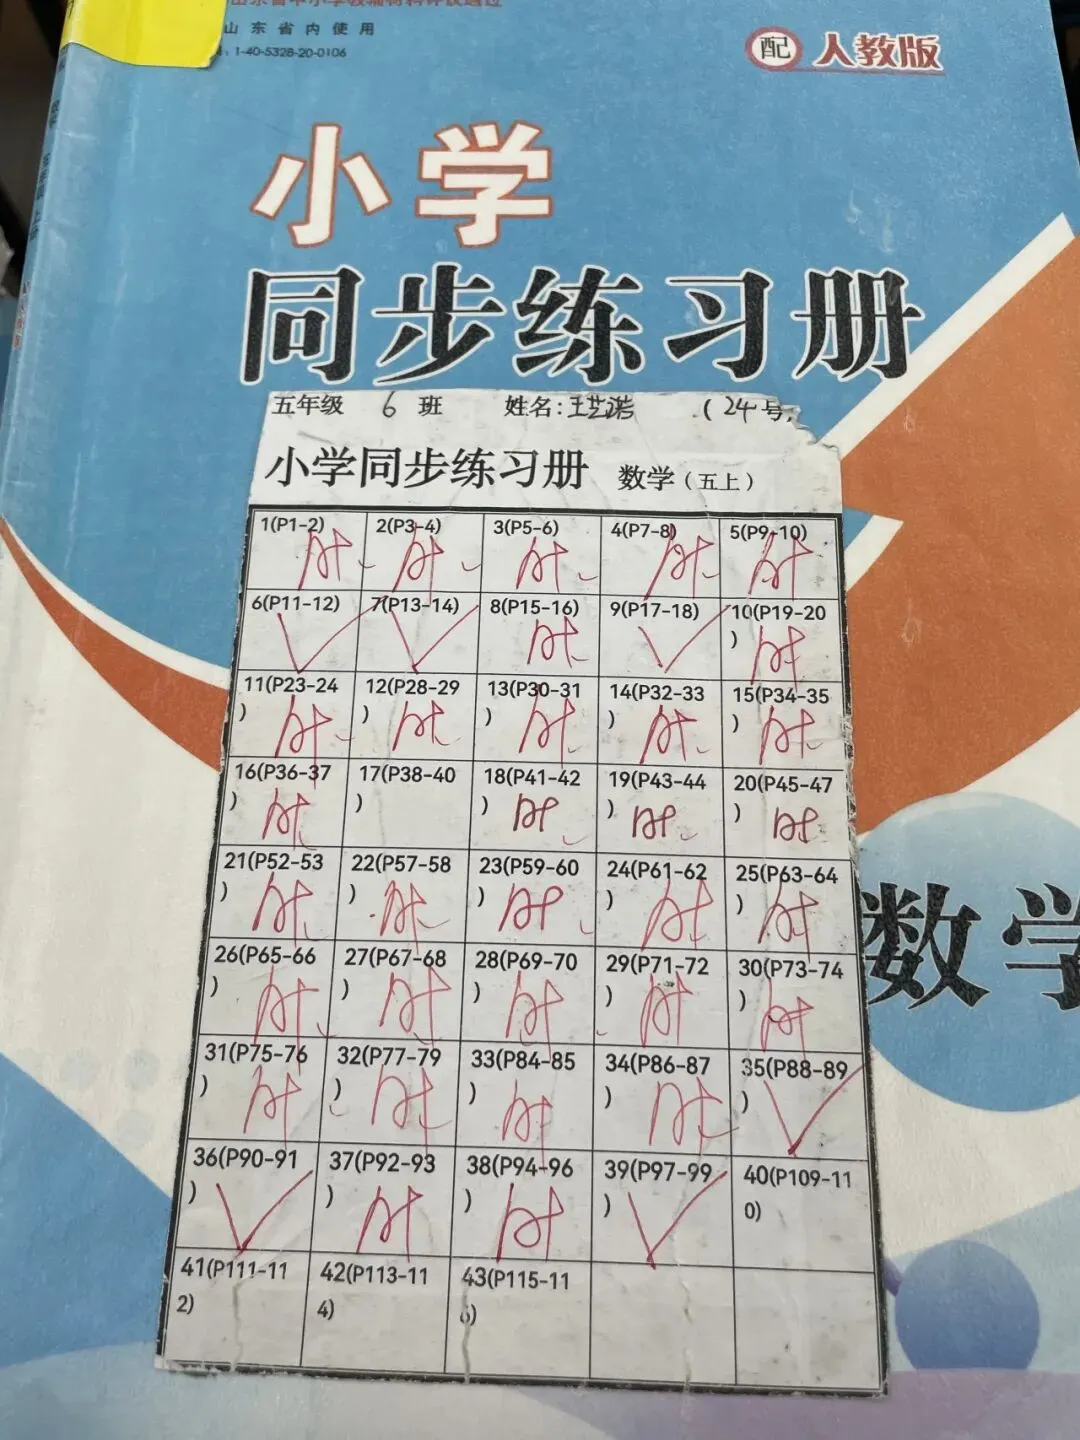 山东省中小学教辅材料评议通过
山东省内使用
: 1-40-5328-20-0106
配 人教版
小学
同步练习册
五年级 6 班 姓名: 王艺诺 (24号)
小学同步练习册 数学(五上)
1(P1-2) 2(P3-4) 3(P5-6) 4(P7-8) 5(P9-10)
6(P11-12) 7(P13-14) 8(P15-16) 9(P17-18) 10(P19-20)
11(P23-24) 12(P28-29) 13(P30-31) 14(P32-33) 15(P34-35)
16(P36-37) 17(P38-40) 18(P41-42) 19(P43-44) 20(P45-47)
21(P52-53) 22(P57-58) 23(P59-60) 24(P61-62) 25(P63-64)
26(P65-66) 27(P67-68) 28(P69-70) 29(P71-72) 30(P73-74)
31(P75-76) 32(P77-79) 33(P84-85) 34(P86-87) 35(P88-89)
36(P90-91) 37(P92-93) 38(P94-96) 39(P97-99) 40(P109-110)
41(P111-112) 42(P113-114) 43(P115-116)
数学